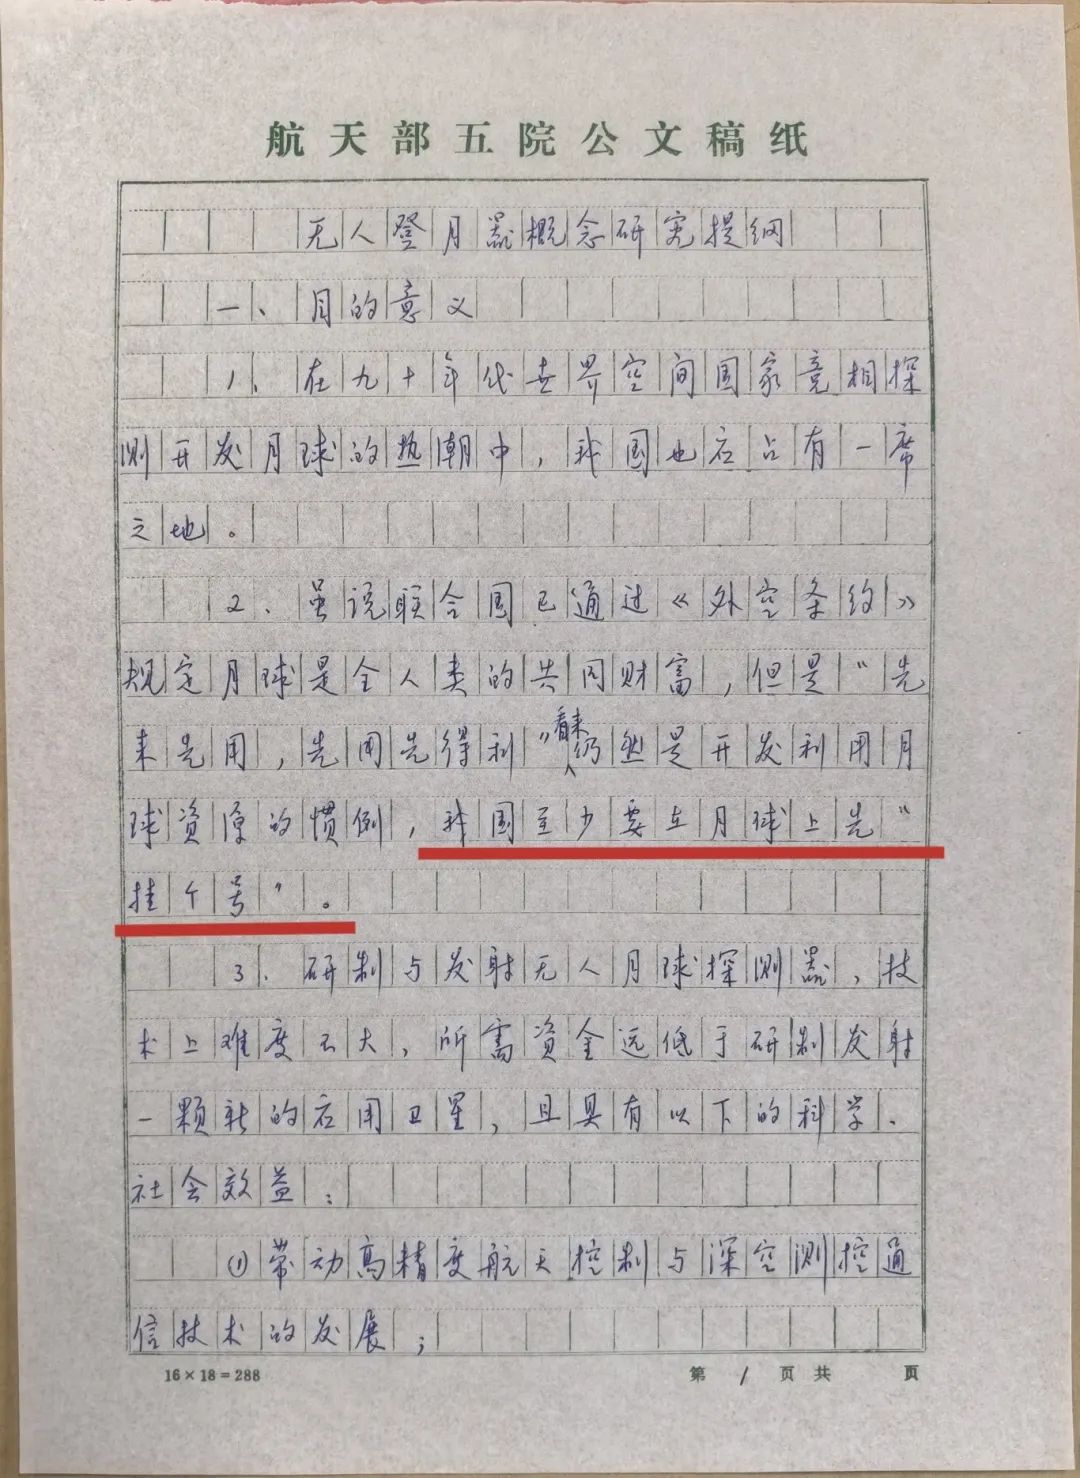 航天部五院公文稿纸
无人登月器概念研究提纲
一、目的意义
1、在九十年代世界空间国家竞相探
测开发月球的热潮中，我国也应占有一席
之地。
2、虽说联合国已通过《外空条约》
规定月球是全人类的共同财富，但是“先
来先用，先用先得利”看来仍然是开发利用月
球资源的惯例，我国至少要在月球上先“
挂个号”。
3、研制与发射无人月球探测器，技
术上难度不大，所需资金远低于研制发射
一颗新的应用卫星，且具有以下的科学、
社会效益：
①带动高精度航天控制与深空测控通
信技术的发展；
16×18=288 第 1 页共 页